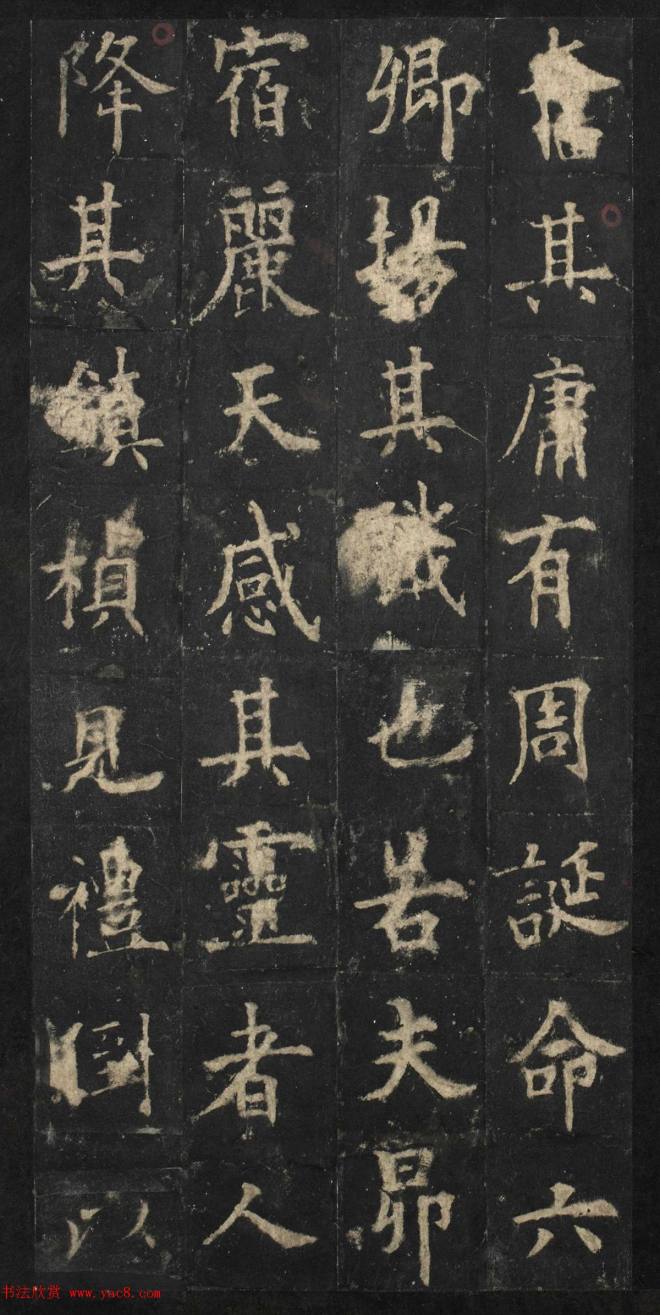 其庸有周誕命六
卿揚其職也若夫昴
宿麗天感其靈者人
降其鎮楨見禮國以
书法欣赏 www.yac8.com